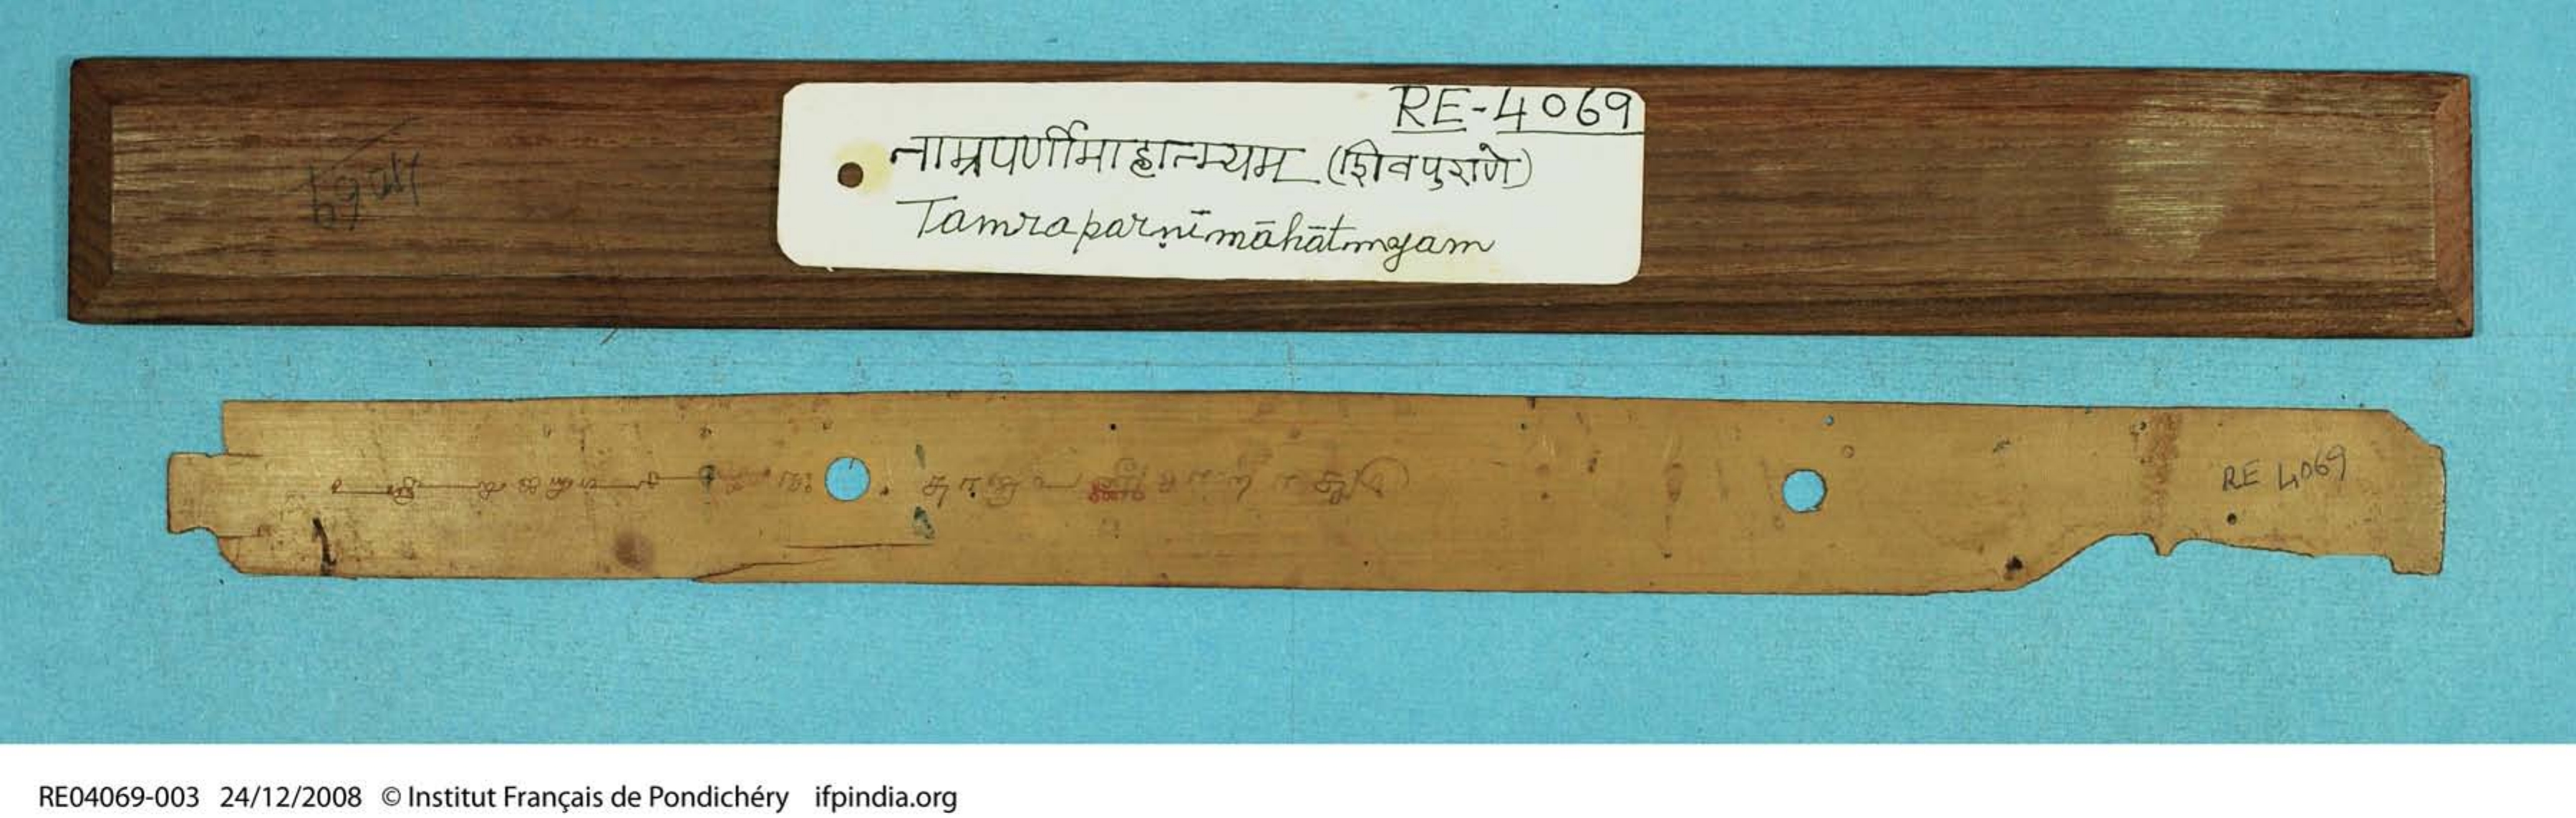 RE-4069
ताम्रपर्णीमाहात्म्यम् (शिवपुराणे)
Tamraparṇīmāhātmyam
4069
RE 4069
RE04069-003 24/12/2008 © Institut Français de Pondichéry ifpindia.org